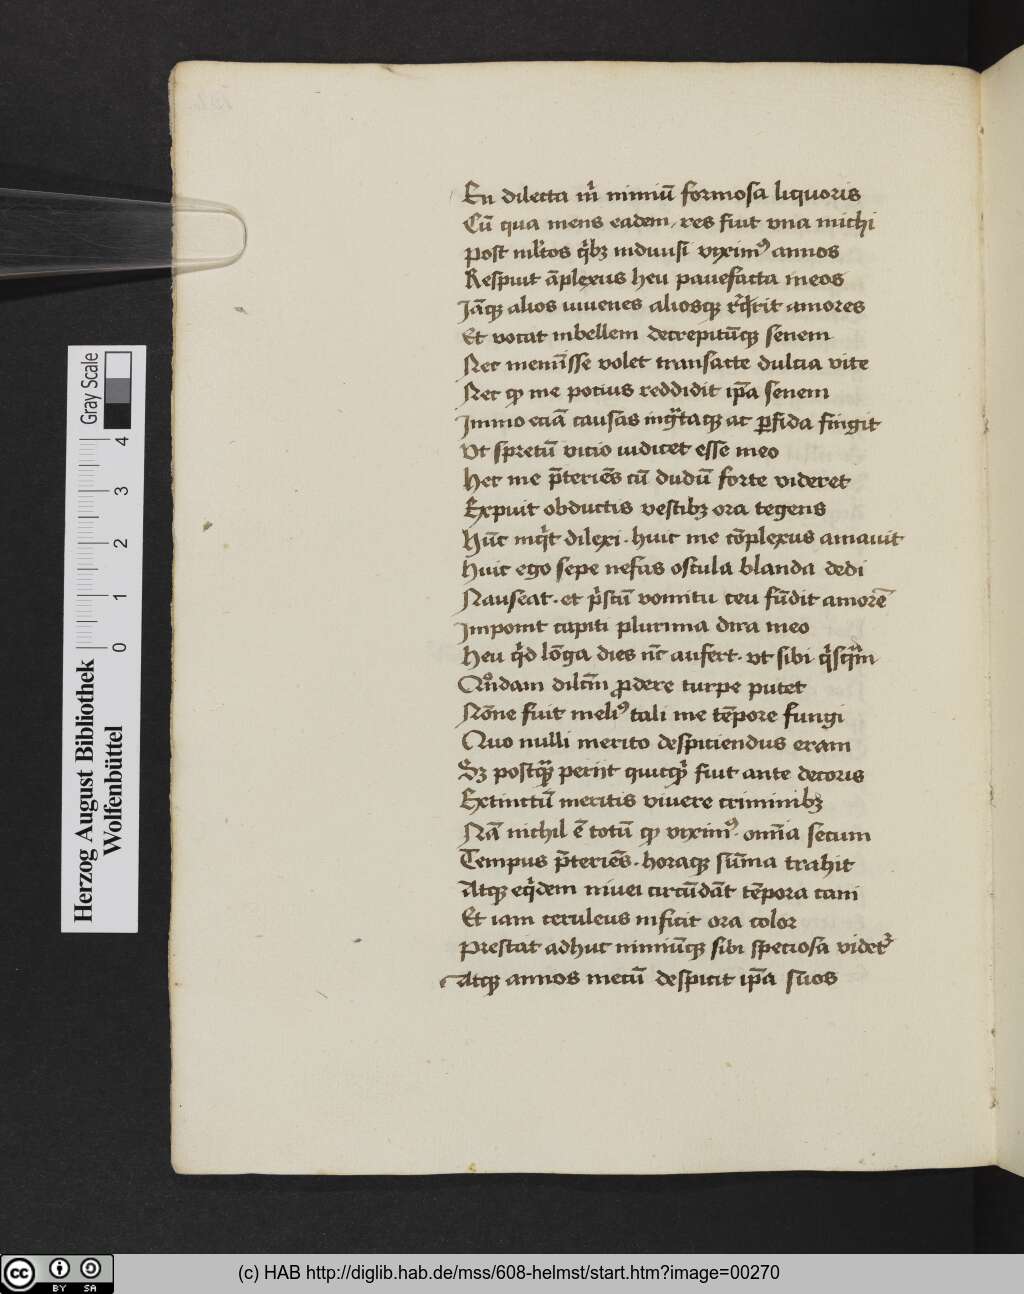 En dilecta m̄ nimiū formosa liquoris
Cū qua mens eadem, res fuit vna michi
Post ml̄tos q̄bꝫ induusi viximꝰ annos
Respuit āplexus heu pauefacta meos
Jāqꝫ alios iuuenes aliosqꝫ amores
Et vocat inbellem decrepitūqꝫ senem
Nec meminīsse volet transacte dulcia vite
Nec ꝙ me potius reddidit ip̄a senem
Immo eciā causas ingͣtaqꝫ ac ꝑfida fingit
Vt spretū vicio iudicet esse meo
Hec me p̄teriēs cū dudū forte videret
Expuit obductis vestibꝫ ora tegens
Hūc inqͥt dilexi · huic me cōplexus amauit
Huic ego sepe nefas oscula blanda dedi
Nauseat · et pͥscū vomitu ceu fūdit amorē
Imponit capiti plurima dira meo
Heu qͥd lōga dies nūc aufert · vt sibi qͥsqͣm
Qn̊dam dilc̄m ꝓdere turpe putet
Nōne fuit meliꝰ tali me tēpore fungi
Quo nulli merito despiciendus eram
Sꝫ postqͣꝫ perijt quicqͥꝫ fuit ante decoris
Extinctū meritis viuere criminibꝫ
Nā nichil ē totū ꝙ viximꝰ · omīa secum
Tempus p̄teriēs · horaqꝫ sūma trahit
Atqꝫ eqͥdem niuei circūdāt tēpora cani
Et iam ceruleus inficit ora color
Prestat adhuc nimiūqꝫ sibi speciosa videtͬ
Atqꝫ annos mecū despicit ip̄a suos
Herzog August Bibliothek
Wolfenbüttel
0 1 2 3 4
Gray Scale
CC BY SA
(c) HAB http://diglib.hab.de/mss/608-helmst/start.htm?image=00270